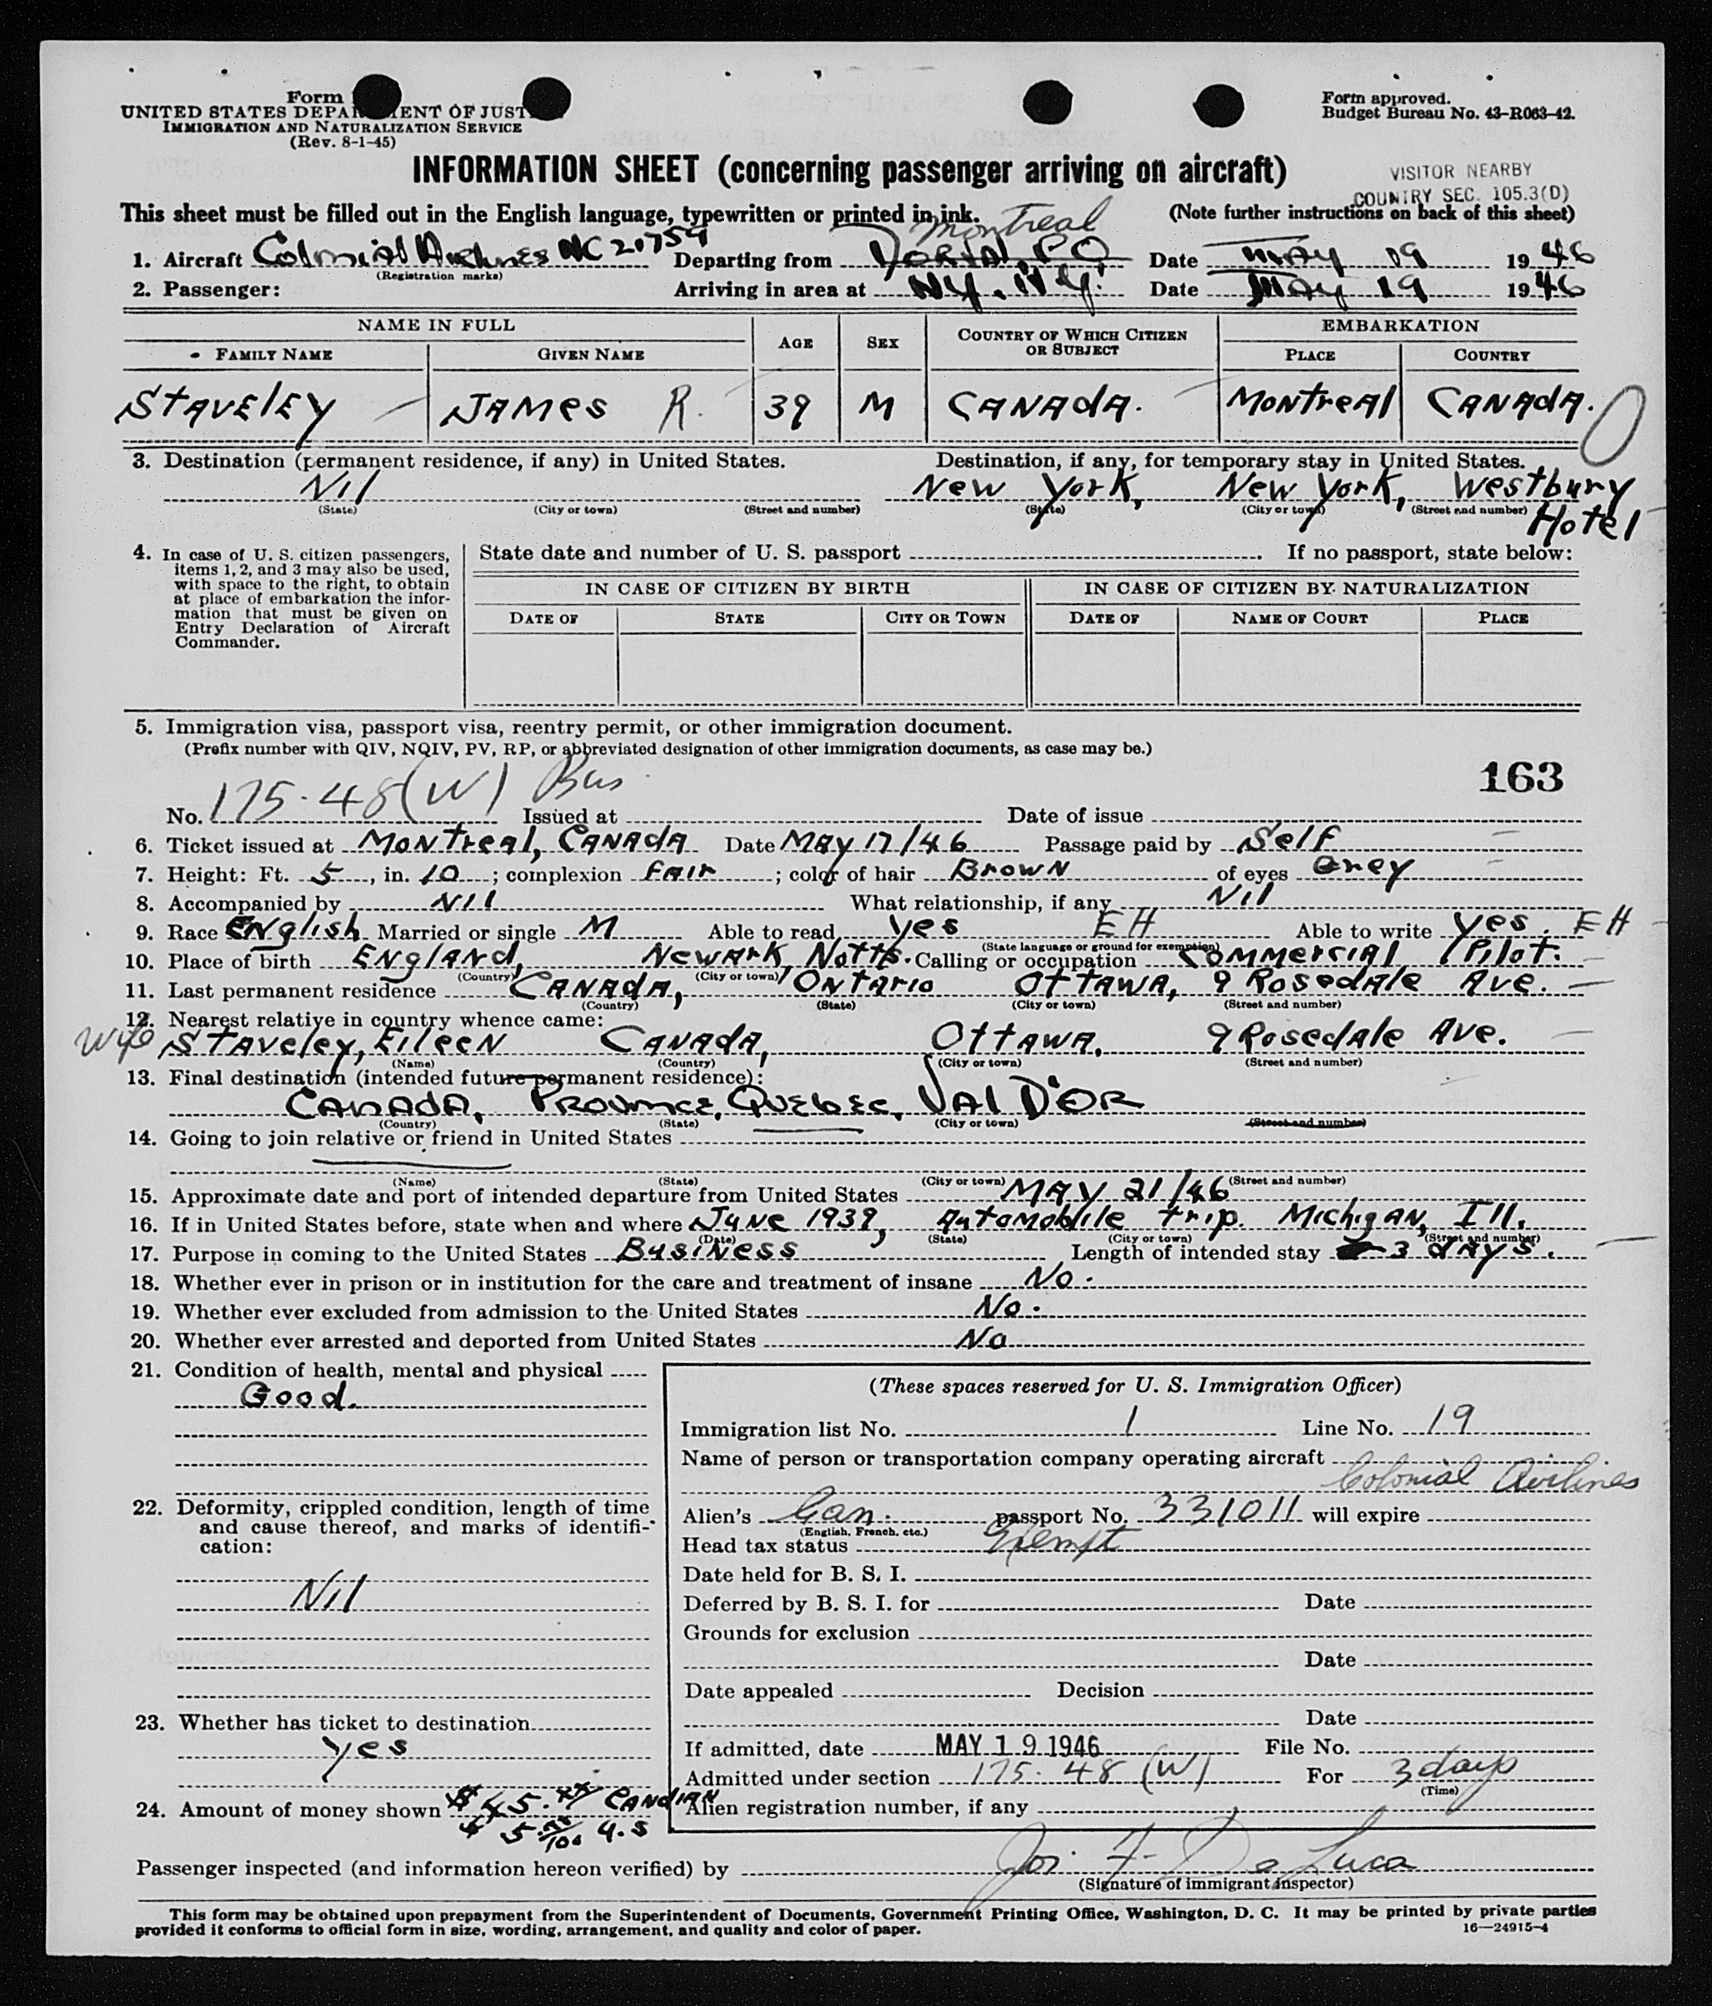 Form
UNITED STATES DEPARTMENT OF JUST
IMMIGRATION AND NATURALIZATION SERVICE
(Rev. 8-1-45)
Form approved.
Budget Bureau No. 43-R063-42.
INFORMATION SHEET (concerning passenger arriving on aircraft)
VISITOR NEARBY
COUNTRY SEC. 105.3(D)
This sheet must be filled out in the English language, typewritten or printed in ink.
(Note further instructions on back of this sheet)
Montreal
1. Aircraft Colonial Airlines NC 21759 Departing from DORVAL P.Q. Date MAY 19 1946
(Registration marks)
2. Passenger: Arriving in area at NY. NY. Date MAY 19 1946
NAME IN FULL AGE SEX COUNTRY OF WHICH CITIZEN OR SUBJECT EMBARKATION
FAMILY NAME GIVEN NAME PLACE COUNTRY
STAVELEY JAMES R. 39 M CANADA. MONTREAL CANADA.
3. Destination (permanent residence, if any) in United States. Destination, if any, for temporary stay in United States.
Nil New York, New York, Westbury Hotel
(State) (City or town) (Street and number) (State) (City or town) (Street and number)
4. In case of U. S. citizen passengers, items 1, 2, and 3 may also be used, with space to the right, to obtain at place of embarkation the information that must be given on Entry Declaration of Aircraft Commander.
State date and number of U. S. passport If no passport, state below:
IN CASE OF CITIZEN BY BIRTH IN CASE OF CITIZEN BY NATURALIZATION
DATE OF STATE CITY OR TOWN DATE OF NAME OF COURT PLACE
5. Immigration visa, passport visa, reentry permit, or other immigration document.
(Prefix number with QIV, NQIV, PV, RP, or abbreviated designation of other immigration documents, as case may be.)
163
No. 175.48 (W) Bus Issued at Date of issue
6. Ticket issued at Montreal, CANADA Date MAY 17/46 Passage paid by Self
7. Height: Ft. 5, in. 10; complexion FAIR; color of hair Brown of eyes Grey
8. Accompanied by Nil What relationship, if any Nil
9. Race English Married or single M Able to read yes EH Able to write yes. EH
(State language or ground for exemption)
10. Place of birth England, Newark, Notts. Calling or occupation Commercial Pilot.
(Country) (City or town)
11. Last permanent residence CANADA, Ontario OTTAWA, 9 Rosedale Ave.
(Country) (State) (City or town) (Street and number)
12. Nearest relative in country whence came:
Wife Staveley, Eileen CANADA, OTTAWA, 9 Rosedale Ave.
(Name) (Country) (City or town) (Street and number)
13. Final destination (intended future permanent residence):
CANADA, PROVINCE, QUEBEC, VAL D'OR
(Country) (State) (City or town) (Street and number)
14. Going to join relative or friend in United States
(Name) (State) (City or town) (Street and number)
15. Approximate date and port of intended departure from United States MAY 21/46
16. If in United States before, state when and where June 1939, Automobile trip. Michigan, Ill.
(Date) (State) (City or town) (Street and number)
17. Purpose in coming to the United States Business Length of intended stay 3 days.
18. Whether ever in prison or in institution for the care and treatment of insane No.
19. Whether ever excluded from admission to the United States No.
20. Whether ever arrested and deported from United States No
21. Condition of health, mental and physical
Good.
22. Deformity, crippled condition, length of time and cause thereof, and marks of identification:
Nil
23. Whether has ticket to destination
yes
24. Amount of money shown $45. CANDIAN
$5. U.S
(These spaces reserved for U. S. Immigration Officer)
Immigration list No. 1 Line No. 19
Name of person or transportation company operating aircraft
Colonial Airlines
Alien's Can. passport No. 331011 will expire
(English, French, etc.)
Head tax status Exempt
Date held for B. S. I.
Deferred by B. S. I. for Date
Grounds for exclusion
Date
Date appealed Decision
Date
If admitted, date MAY 19 1946 File No.
Admitted under section 175.48 (W) For 3 days
(Time)
Alien registration number, if any
Passenger inspected (and information hereon verified) by Jos. F. De Luca
(Signature of immigrant inspector)
This form may be obtained upon prepayment from the Superintendent of Documents, Government Printing Office, Washington, D. C. It may be printed by private parties
provided it conforms to official form in size, wording, arrangement, and quality and color of paper.
16—24915-4